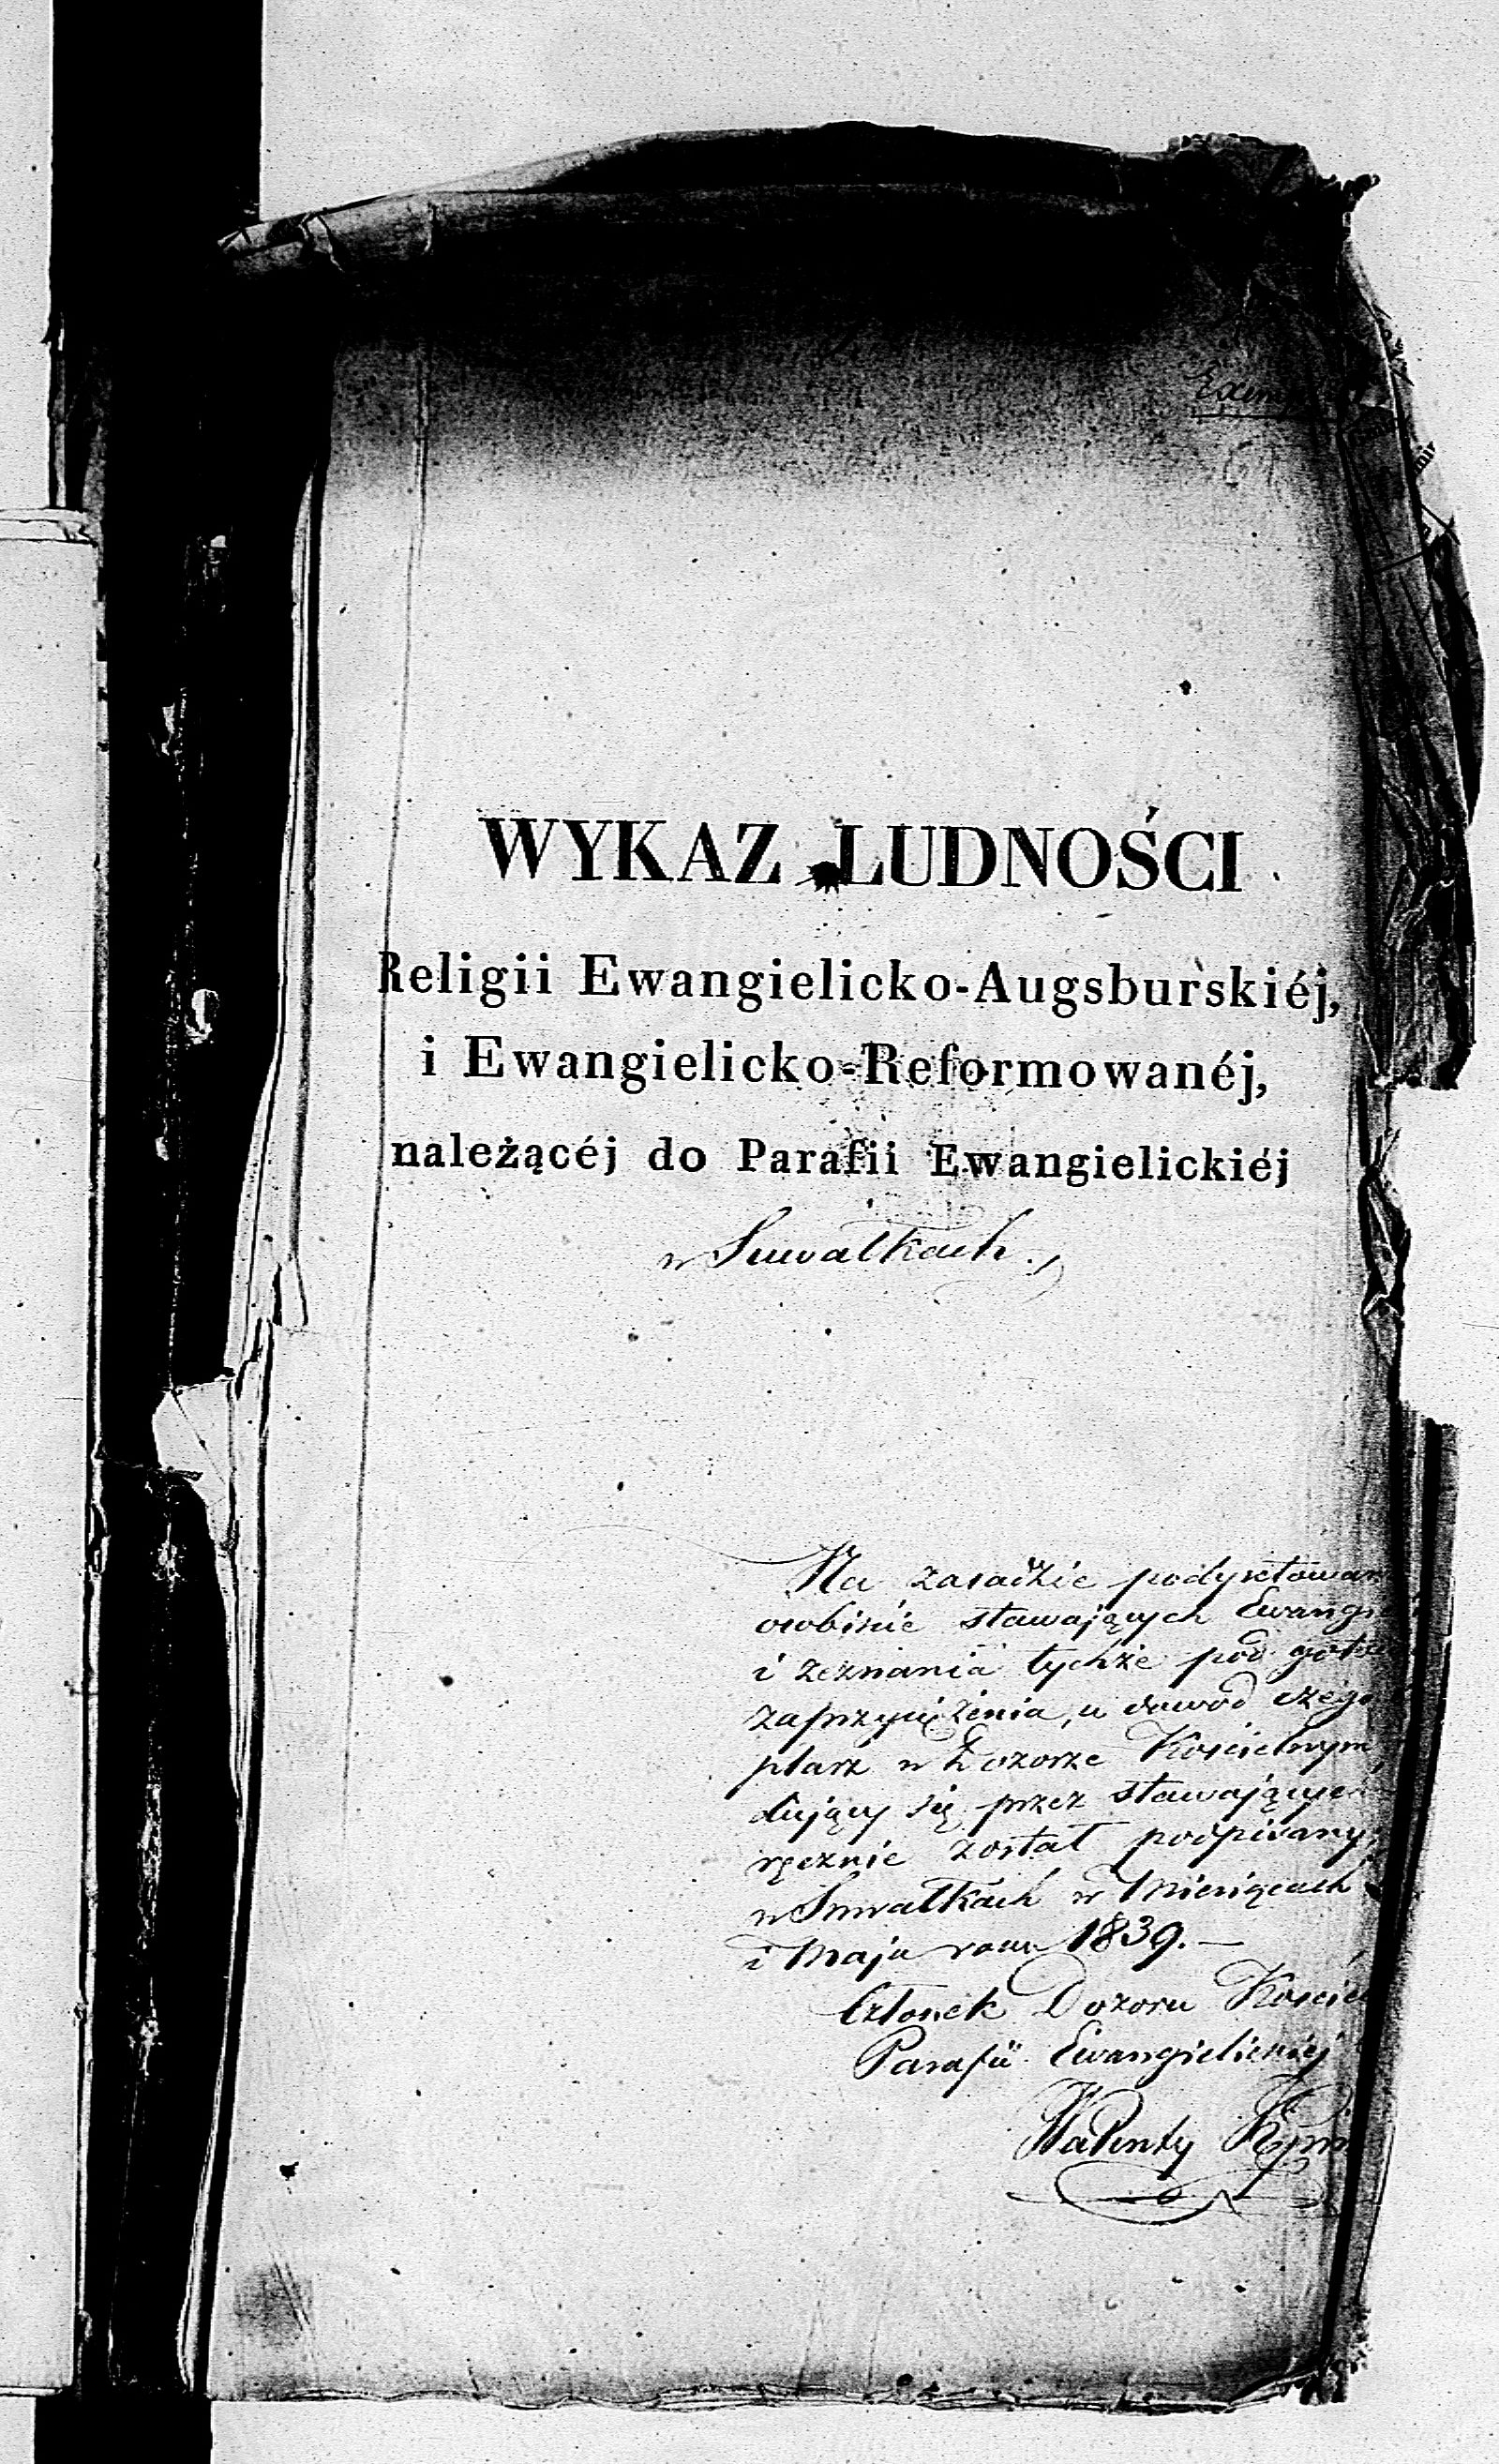 WYKAZ LUDNOŚCI
Religii Ewangielicko-Augsburskiéj,
i Ewangielicko-Reformowanéj,
należącéj do Parafii Ewangielickiéj
w Suwałkach.
Na zasadzie podyktowan
osobiście stawających Ewangi
i zeznania tychże pod goto
zaprzysiężenia, w dowód czego
plarz w Dozorze Kościelnym
dujący się przez stawających
ręcznie został podpisany,
w Suwałkach w Miesiącach
i Maju roku 1839. —
Członek Dozoru Kościel
Parafii Ewangielickiéj
Walenty